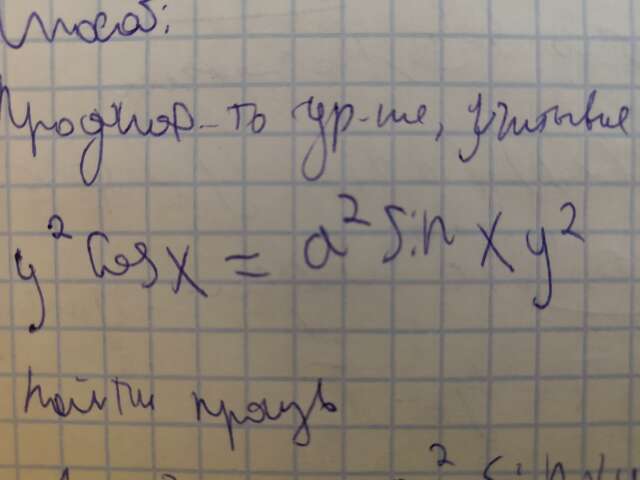 способ:
Продиффер-ть ур-ие, учитывая
y² cos x = a² sin x y²
Найти произв